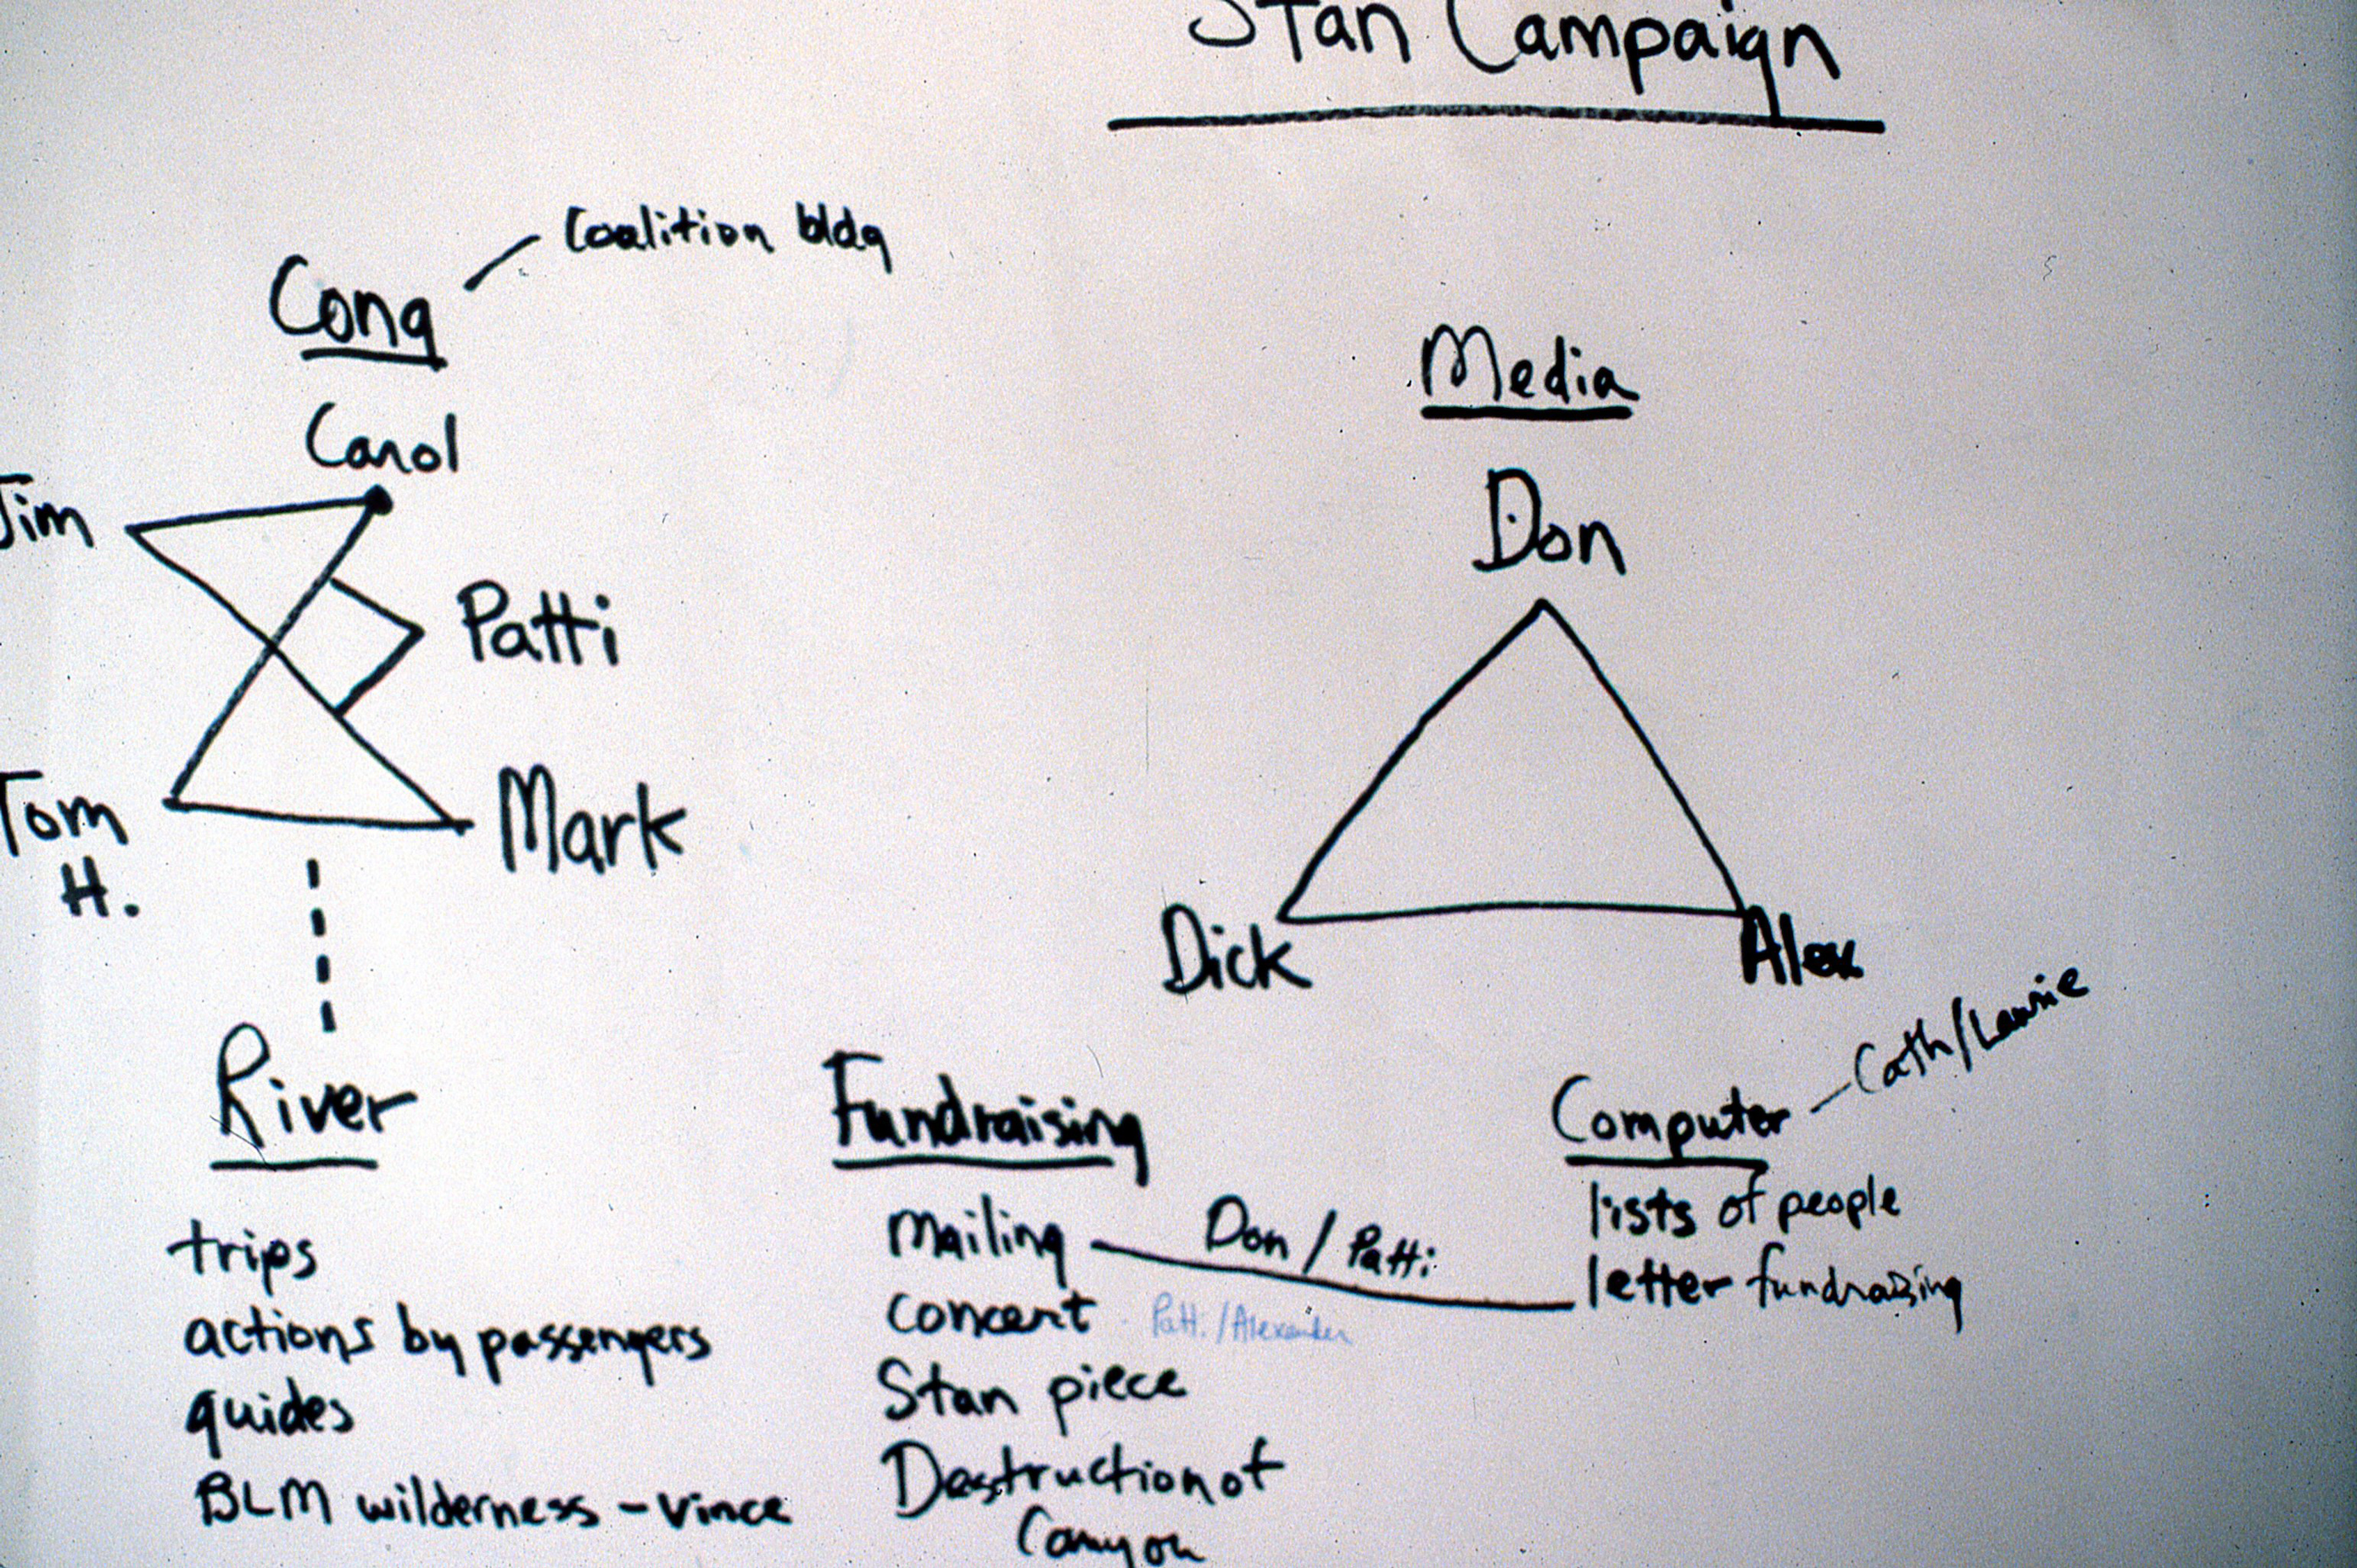 Stan Campaign
Cong
Coalition bldg
Carol
Jim
Patti
Tom
H.
Mark
Media
Don
Dick
Alex
River
trips
actions by passengers
guides
BLM wilderness - Vince
Fundraising
mailing
Don / Patti
concert
Patti/Alexander
Stan piece
Destruction of
Canyon
Computer
Cath/Laurie
lists of people
letter fundraising